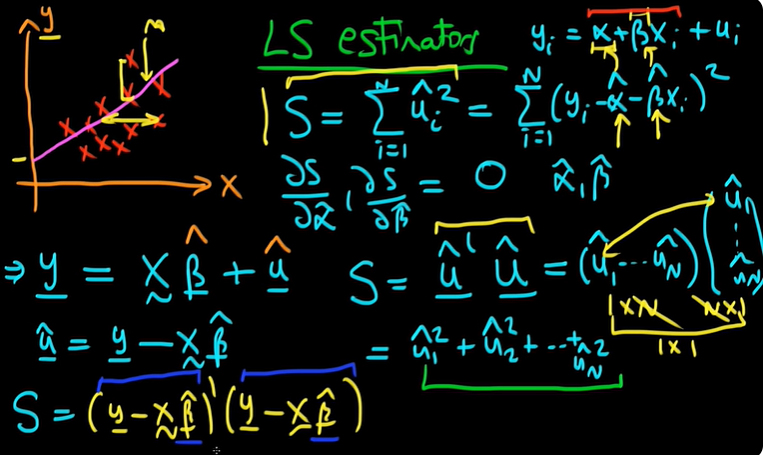 y
x
LS estimators
yᵢ = α + βxᵢ + uᵢ
S = Σᵢ₌₁ᴺ ûᵢ² = Σᵢ₌₁ᴺ (yᵢ - α̂ - β̂xᵢ)²
∂S/∂α̂ , ∂S/∂β̂ = 0   α̂, β̂
⇒ y = X β̂ + û
S = û' û = (û₁ ---- û_N) (û₁ ⋮ û_N)
1×N N×1
1×1
û = y - X β̂
= û₁² + û₂² + ---- + û_N²
S = (y - X β̂)' (y - X β̂)